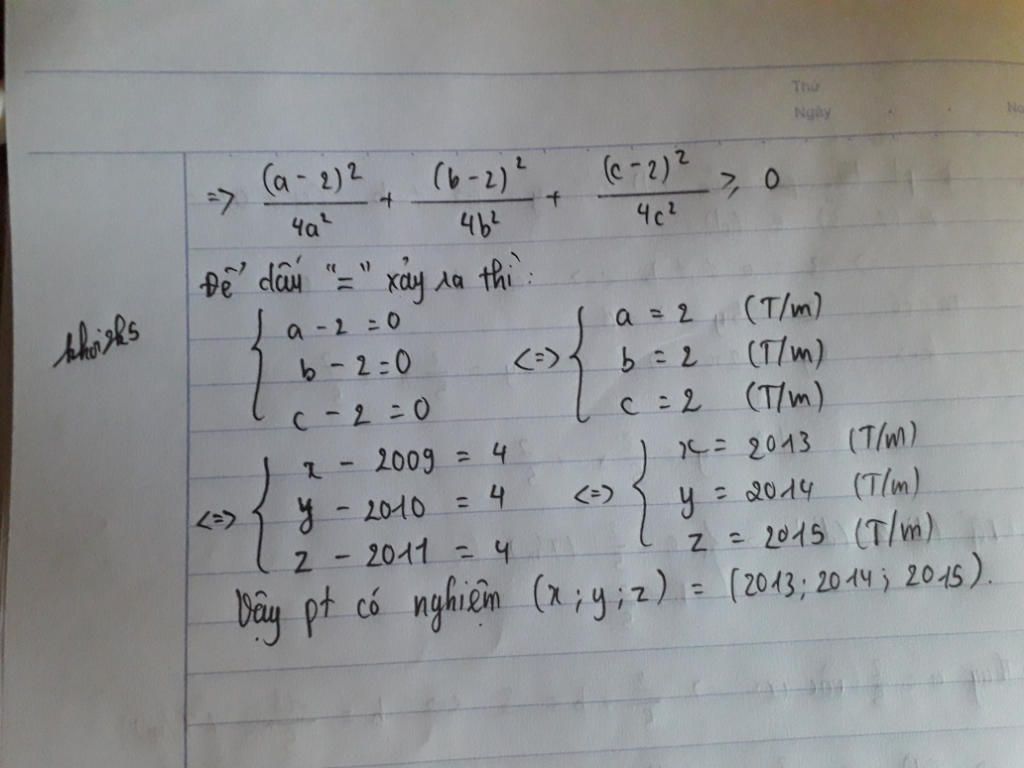 Thứ
Ngày
No
=> (a - 2)²/4a² + (b - 2)²/4b² + (c - 2)²/4c² ≥ 0
Để dấu "=" xảy ra thì:
{ a - 2 = 0 <=> { a = 2 (T/m)
b - 2 = 0 b = 2 (T/m)
c - 2 = 0 c = 2 (T/m)
khoi2k5
<=> { x - 2009 = 4 <=> { x = 2013 (T/m)
y - 2010 = 4 y = 2014 (T/m)
z - 2011 = 4 z = 2015 (T/m)
Vậy pt có nghiệm (x; y; z) = (2013; 2014; 2015).